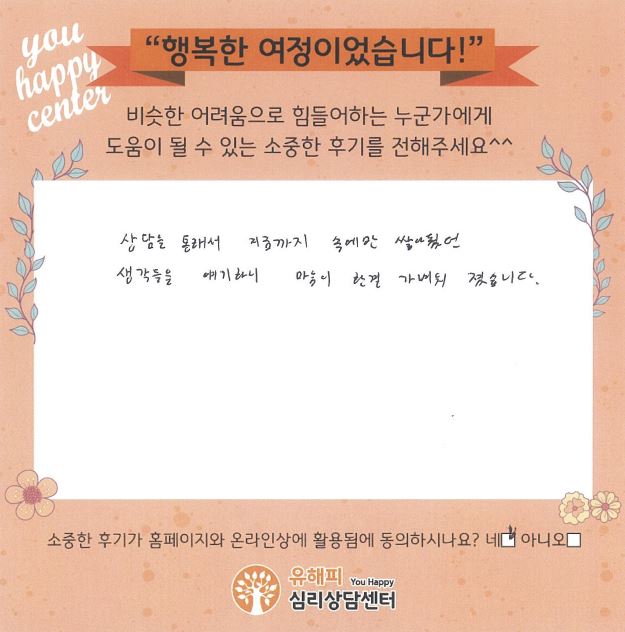 you
happy
center
“행복한 여정이었습니다!”
비슷한 어려움으로 힘들어하는 누군가에게
도움이 될 수 있는 소중한 후기를 전해주세요^^
상담을 통해서 지금까지 속에만 쌓아뒀던
생각들을 얘기하니 마음이 한결 가벼워 졌습니다.
소중한 후기가 홈페이지와 온라인상에 활용됨에 동의하시나요? 네 아니오
유해피 You Happy
심리상담센터